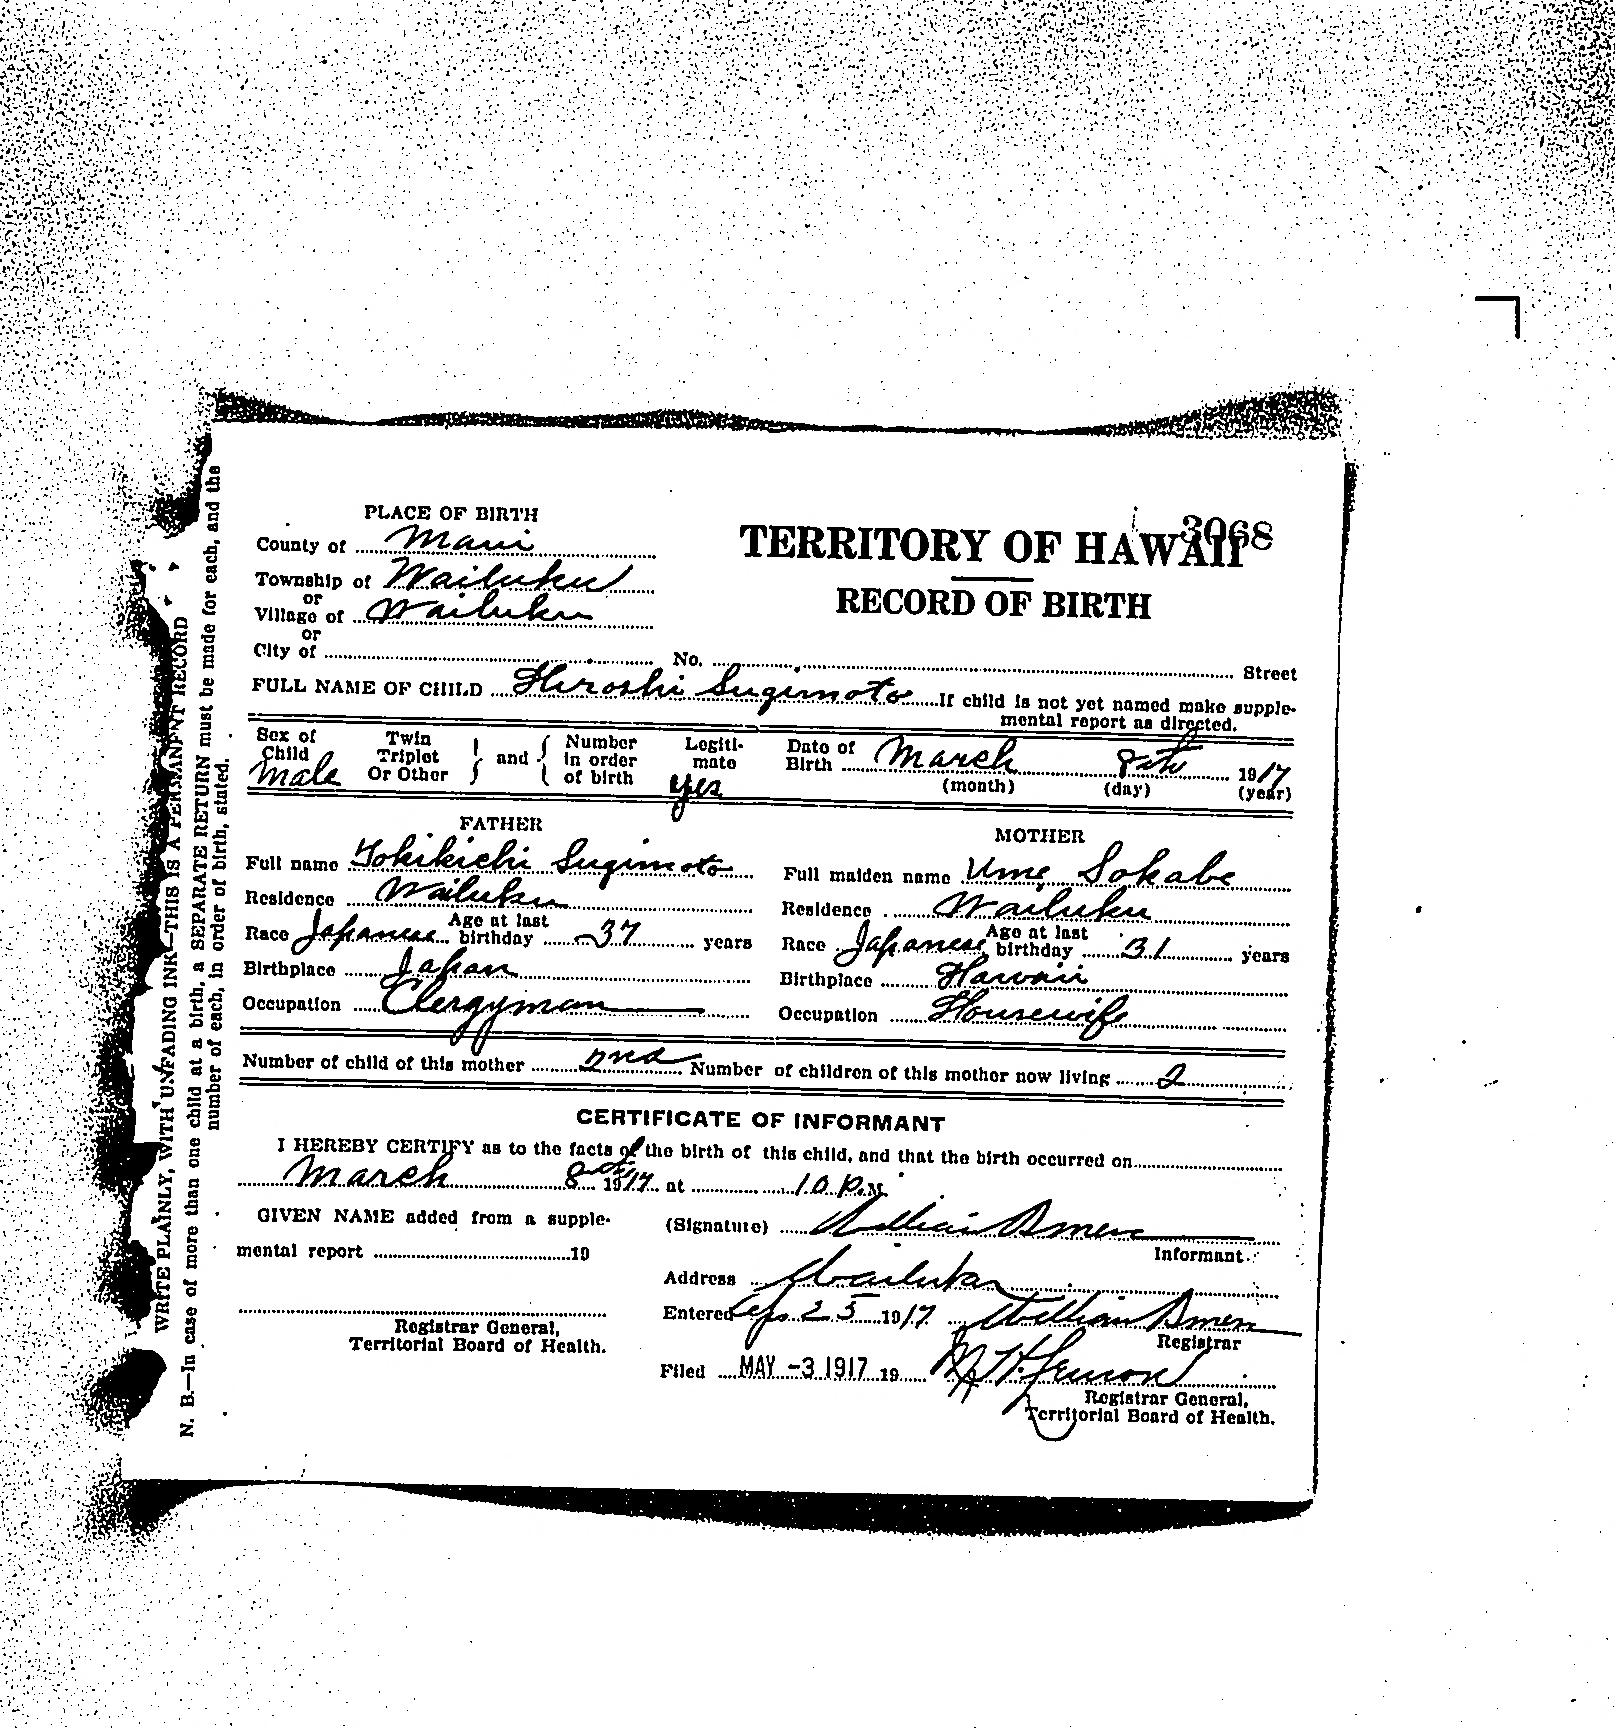 PLACE OF BIRTH
County of Maui
Township of Wailuku
or
Village of Wailuku
or
City of No. Street
3068
TERRITORY OF HAWAII
RECORD OF BIRTH
FULL NAME OF CHILD Hiroshi Sugimoto If child is not yet named make supple-
mental report as directed.
Sex of Child Male
Twin Triplet Or Other } and { Number in order of birth
Legiti-mate yes
Date of Birth March 8th 1917
(month) (day) (year)
FATHER
Full name Tokikichi Sugimoto
Residence Wailuku
Race Japanese Age at last birthday 37 years
Birthplace Japan
Occupation Clergyman
MOTHER
Full maiden name Ume Sokabe
Residence Wailuku
Race Japanese Age at last birthday 31 years
Birthplace Hawaii
Occupation Housewife
Number of child of this mother 2nd Number of children of this mother now living 2
CERTIFICATE OF INFORMANT
I HEREBY CERTIFY as to the facts of the birth of this child, and that the birth occurred on
March 8th 1917 at 10 P.M.
GIVEN NAME added from a supple-
mental report 19
Registrar General,
Territorial Board of Health.
(Signature) William
Informant
Address Wailuku
Entered 25 1917 William
Registrar
Filed MAY -3 1917 19
Registrar General,
Territorial Board of Health.
WRITE PLAINLY, WITH UNFADING INK—THIS IS A PERMANENT RECORD
N. B.—In case of more than one child at a birth, a SEPARATE RETURN must be made for each, and the
number of each, in order of birth, stated.